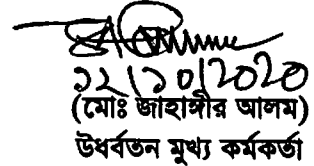 ১২/১০/2020
(মোঃ জাহাঙ্গীর আলম)
উধর্বতন মুখ্য কর্মকর্তা